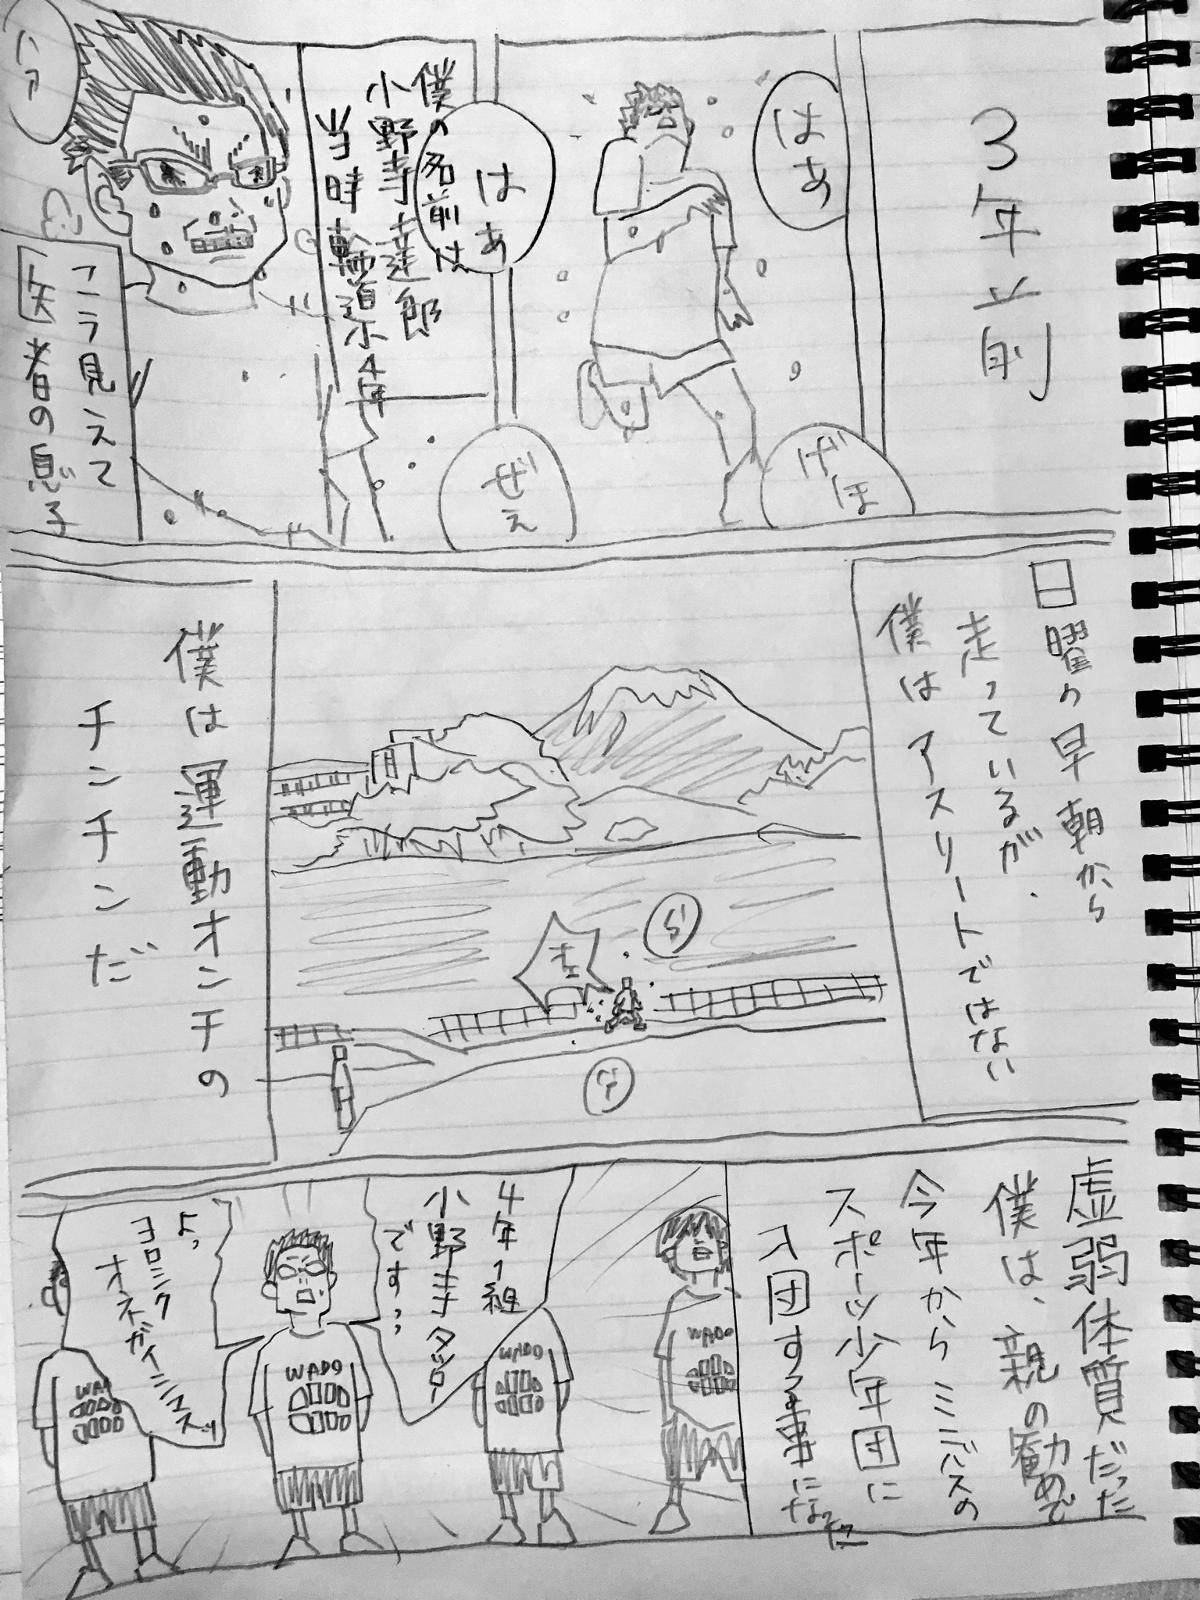 3年前
はぁ
げほ
はぁ
ぜえ
僕の名前は
小野寺達郎
当時輪道小4年
ハァ
こう見えて
医者の息子
日曜の早朝から
走っているが、
僕はアスリートではない
僕は運動オンチの
チンチンだ
虚弱体質だった
僕は、親の勧めで
今年からミニバスの
スポーツ少年団に
入団する事になった
WADO
WADO
4年1組
小野寺タツロー
ですっ
WADO
よっ
ヨロシク
オネガイシマスッ
WAD